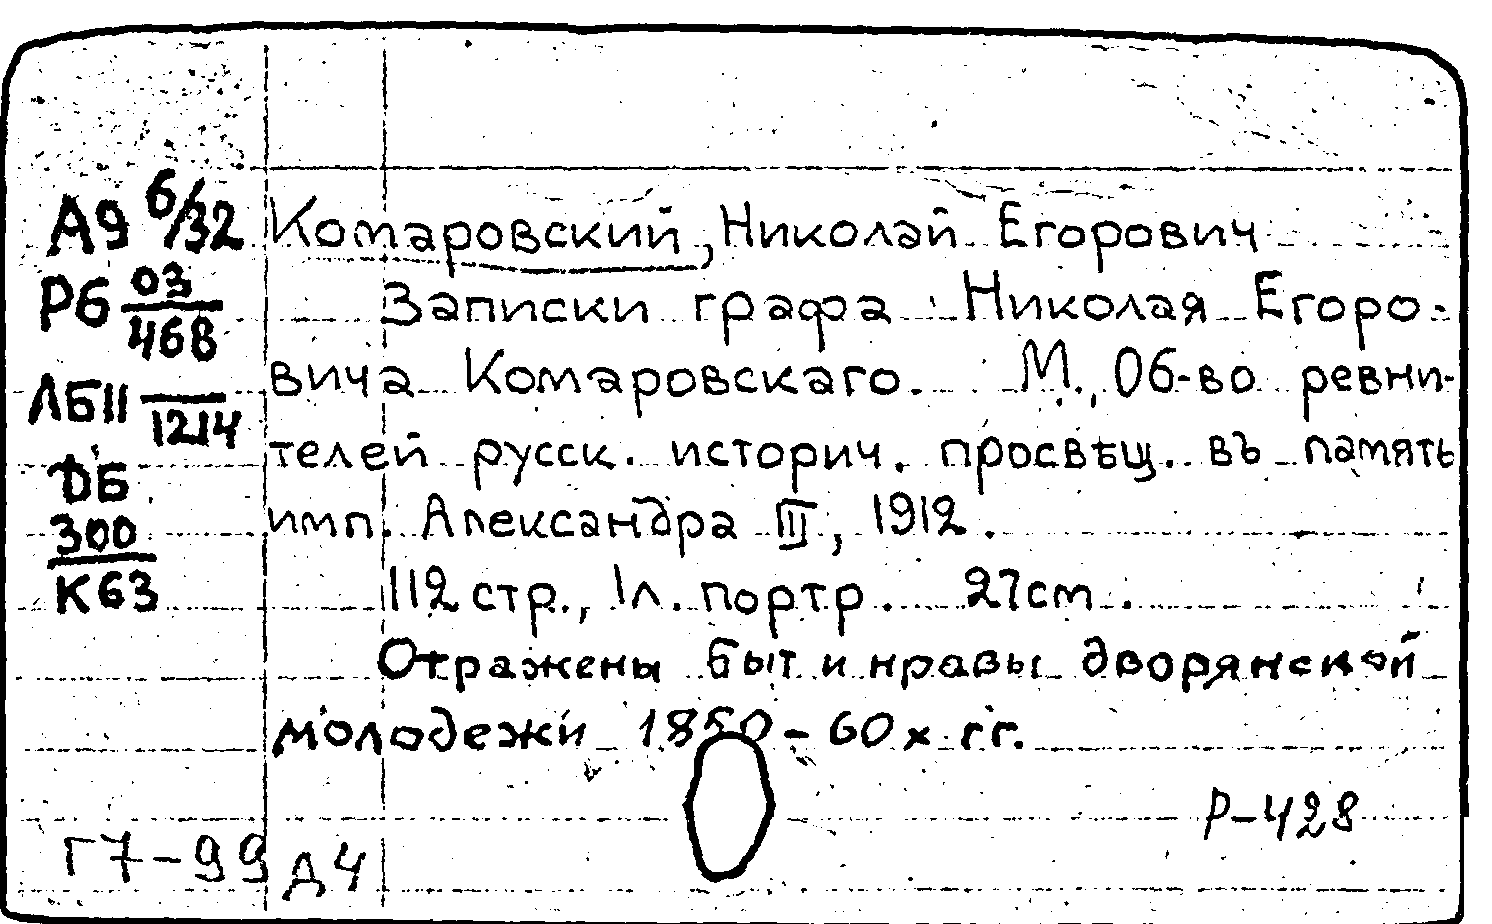 А9 6/32 Комаровский, Николай Егорович
Р6 03/468 Записки графа Николая Егоро-
вича Комаровскаго. М., Об-во ревни-
ЛБII 1214
телей русск. историч. просвѣщ. въ память
ДБ
300/К63
имп. Александра III, 1912.
112 стр., 1 л. портр. 27 см.
Отражены быт и нравы дворянской
молодежи 1850-60х гг.
Р-428
Г7-99 Д4